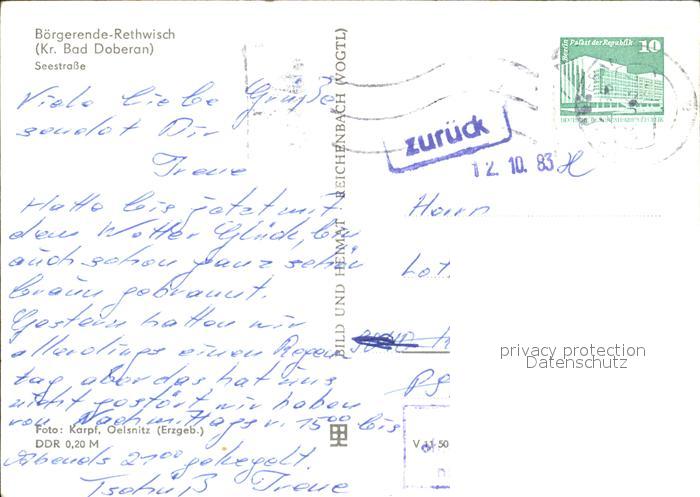 Börgerende-Rethwisch
(Kr. Bad Doberan)
Seestraße
Viele liebe Grüße
sendet Dir
Irene
Hatte bis jetzt mit
dem Wetter Glück, bin
auch schon ganz schön
braun gebrannt.
Gestern hatten wir
allerdings einen Regen-
tag, aber das hat uns
nicht gestört, wir haben
von Nachmittags v. 15⁰⁰ bis
Abends 21⁰⁰ gekegelt.
Tschüß Irene
Foto: Karpf, Oelsnitz (Erzgeb.)
DDR 0,20 M
BILD UND HEIMAT REICHENBACH (VOGTL)
Berlin Palast der Republik 10
zurück
12. 10. 83
Herrn
Lot.
V 11 50
privacy protection
Datenschutz